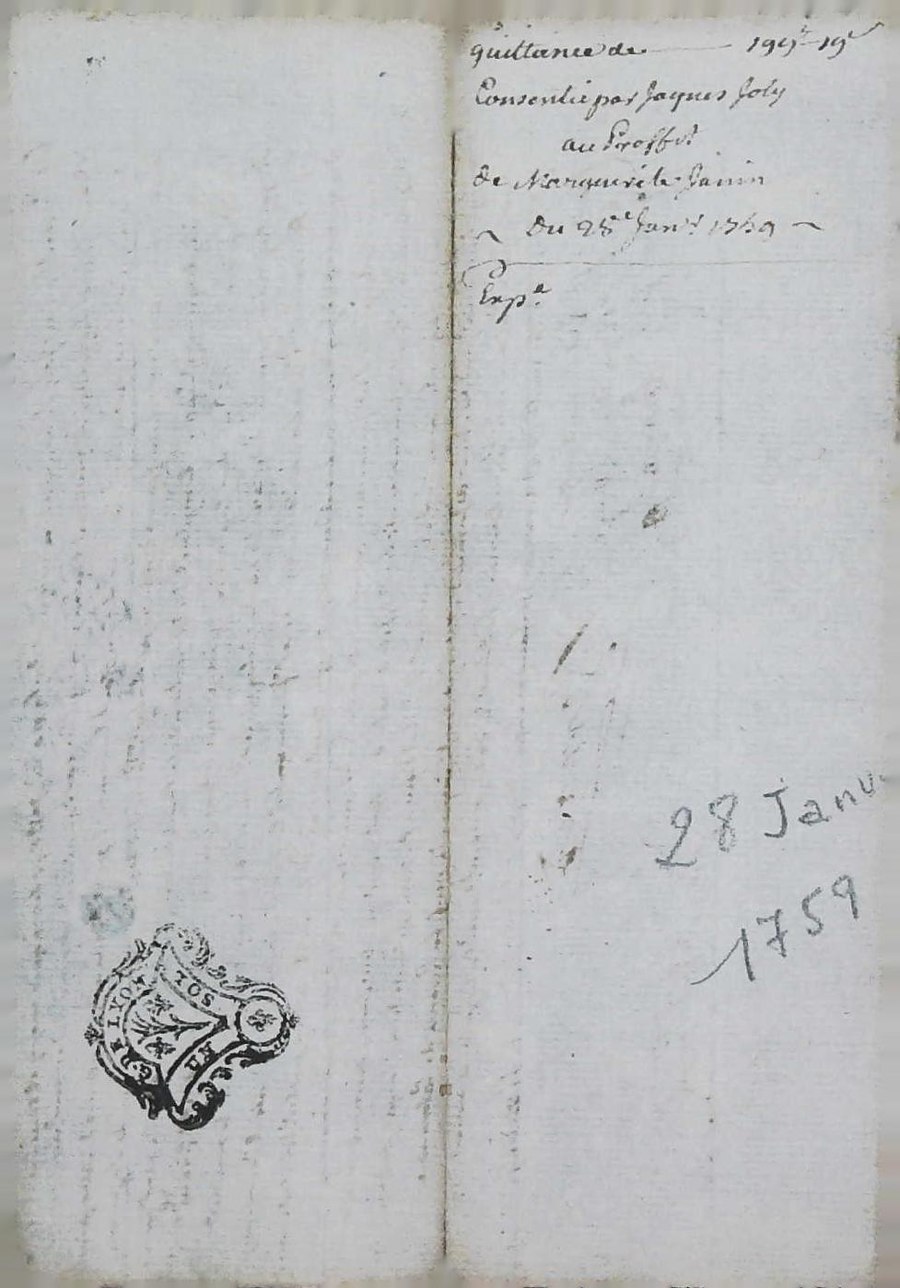 quittance de 199# 19s
Consentie par Jaques Joly
au Proffit
de Marguerite Janin
Du 28e Janvr 1759
Expe.
28 Janv
1759
GNE LYON
SOL